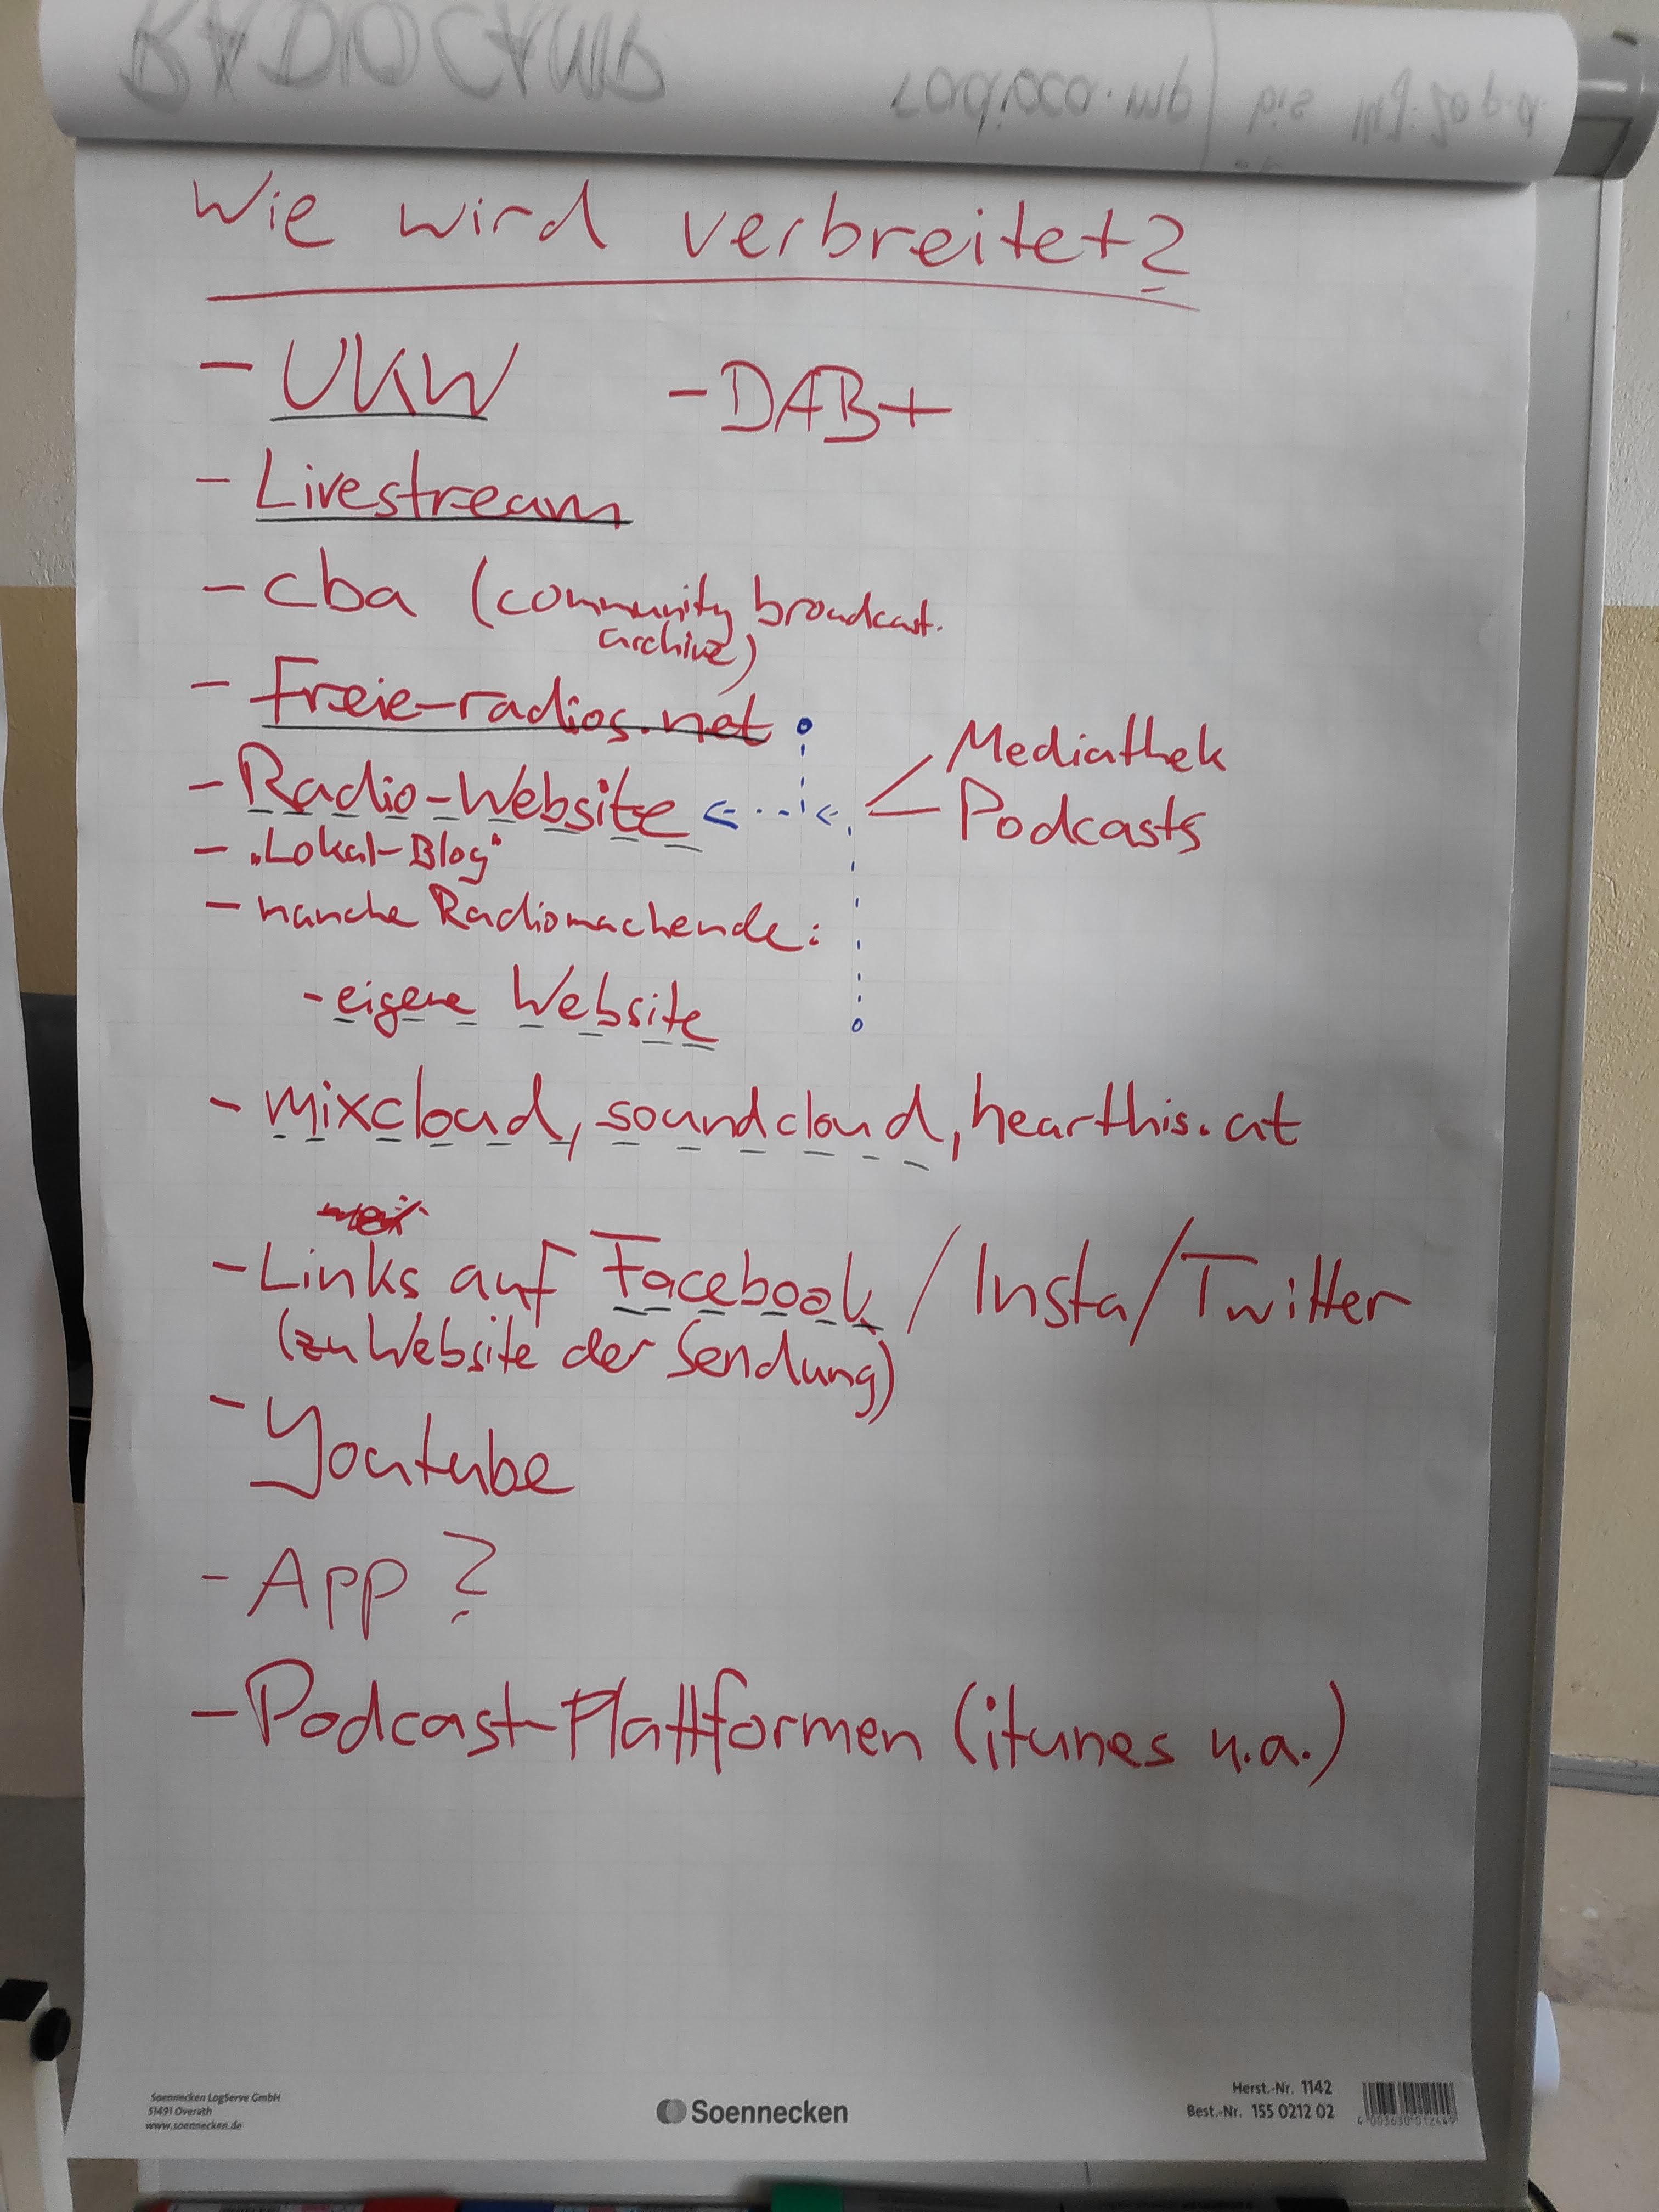 Wie wird verbreitet?
- UKW - DAB+
- Livestream
- cba (community broadcast.
archive)
- Freie-radios.net
- Radio-Website
Mediathek
Podcasts
- "Lokal-Blog"
- manche Radiomachende:
- eigene Website
- mixcloud, soundcloud, hearthis.at
- Links auf Facebook / Insta / Twitter
(zu Website der Sendung)
- Youtube
- App ?
- Podcast-Plattformen (itunes u.a.)
Soennecken LogServe GmbH
51491 Overath
www.soennecken.de
Soennecken
Herst.-Nr. 1142
Best.-Nr. 155 0212 02